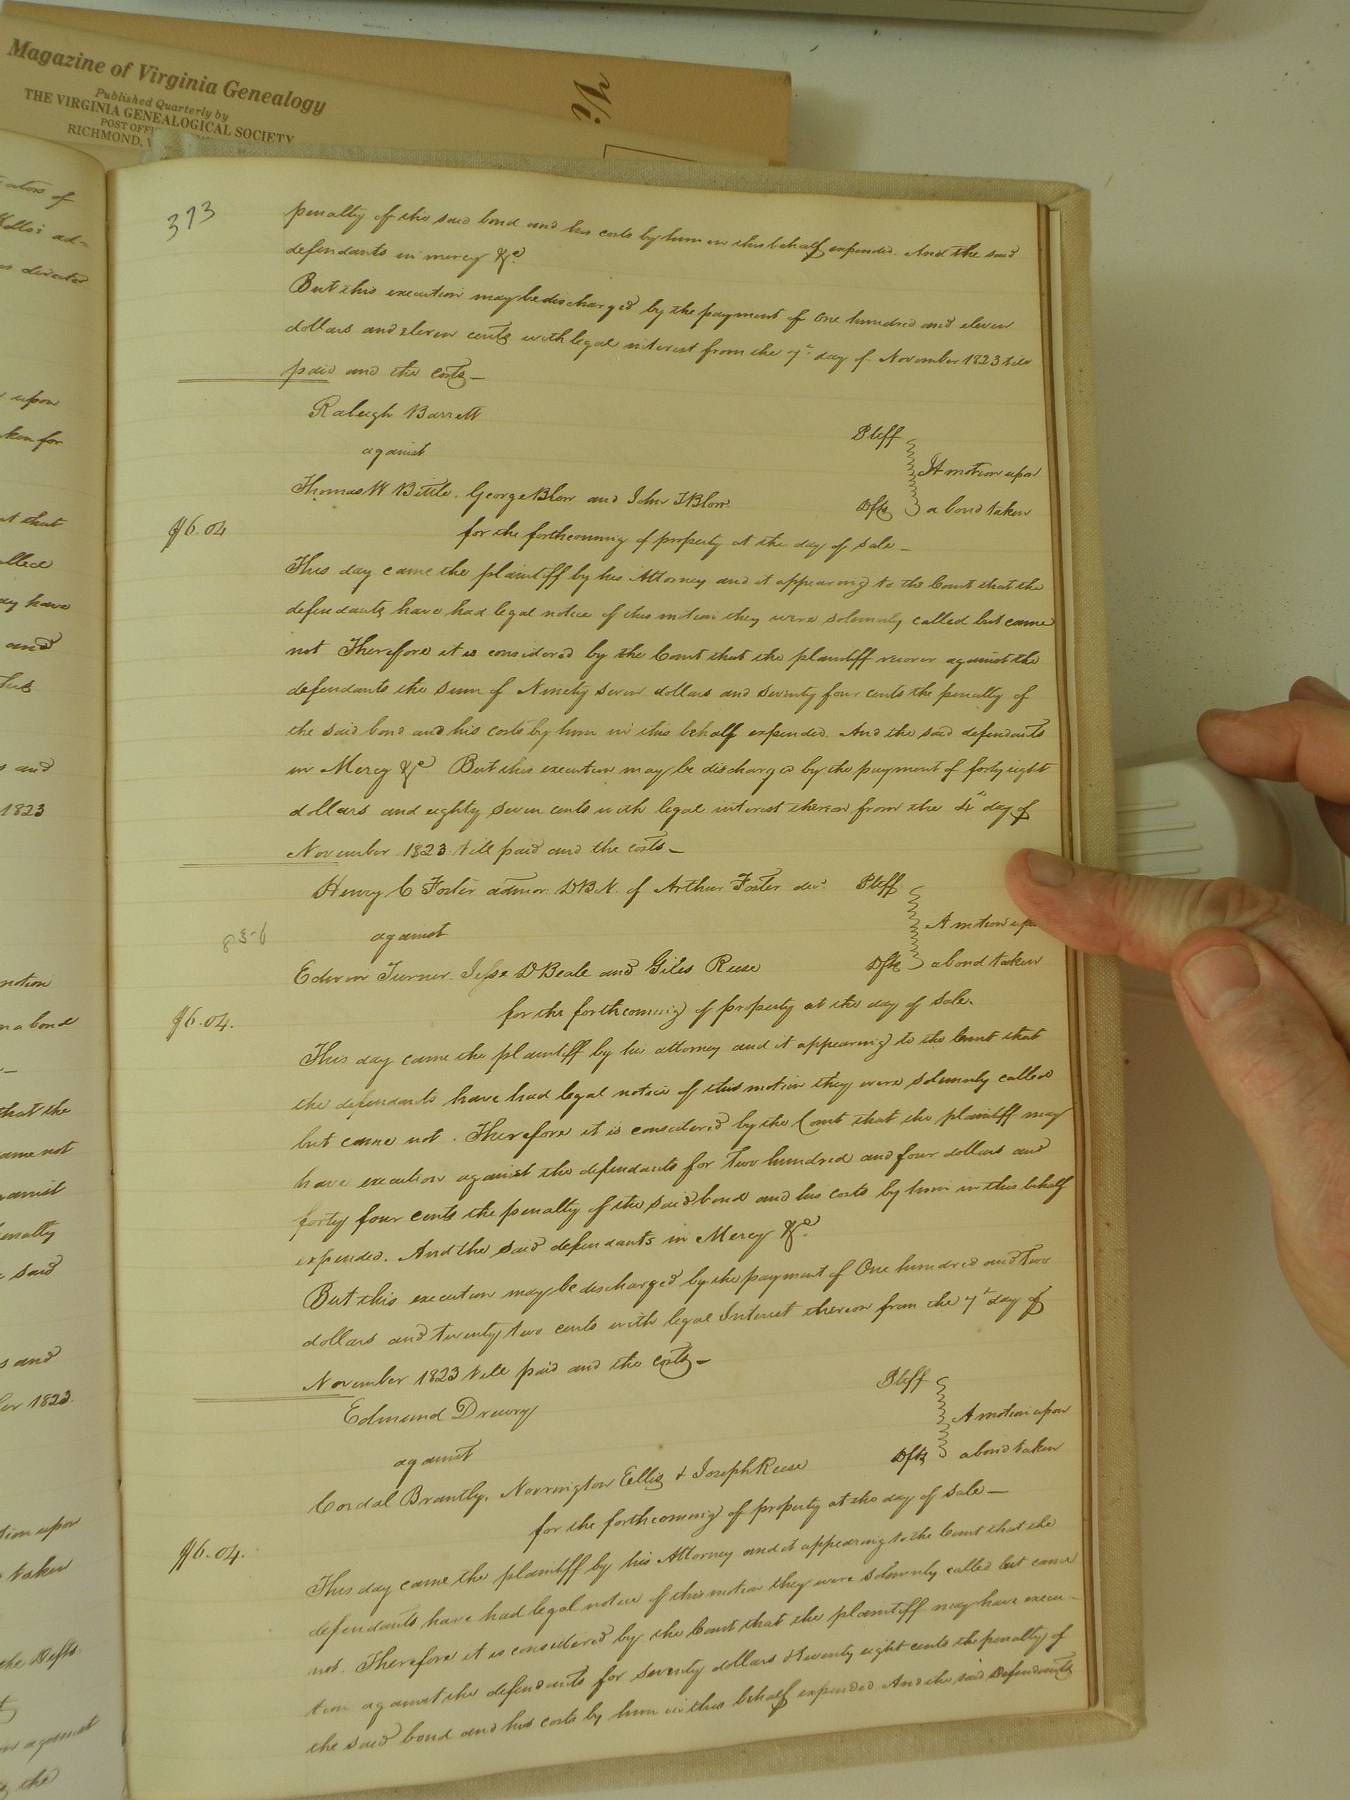 Magazine of Virginia Genealogy
Published Quarterly by
THE VIRGINIA GENEALOGICAL SOCIETY
POST OFF
RICHMOND, V
Vi
373
penalty of the said bond and his costs by him in this behalf expended. And the said
defendants in mercy &c.
But this execution may be discharged by the payment of One hundred and eleven
dollars and eleven cents with legal interest from the 7th day of November 1823 till
paid and the costs —
Raleigh Barrett Pltff
against
It motion upon
Thomas W Bittle. George Blow and John T Blow Dfts a bond taken
$6.04
for the forthcoming of property at the day of sale —
This day came the plaintiff by his Attorney and it appearing to the Court that the
defendants have had legal notice of this motion they were solemnly called but came
not Therefore it is considered by the Court that the plaintiff recover against the
defendants the sum of Ninety seven dollars and seventy four cents the penalty of
the said bond and his costs by him in this behalf expended. And the said defendants
in Mercy &c But this execution may be discharged by the payment of forty eight
dollars and eighty seven cents with legal interest thereon from the 4th day of
November 1823 till paid and the costs —
Henry C Foster admor. DBN. of Arthur Foster decd. Pltff
A motion upo
against
Edwin Turner. Jesse D Beale and Giles Reese Dfts a bond taken
for the forthcoming of property at the day of sale.
$6.04.
This day came the plaintiff by his attorney and it appearing to the Court that
the defendants have had legal notice of this motion they were solemnly called
but came not. Therefore it is considered by the Court that the plaintiff may
have execution against the defendants for Two hundred and four dollars and
forty four cents the penalty of the said bond and his costs by him in this behalf
expended. And the said defendants in Mercy &c.
But this execution may be discharged by the payment of One hundred and Two
dollars and twenty two cents with legal Interest thereon from the 7th day of
November 1823 till paid and the costs —
Edmund Drewry Pltff
A motion upon
against
Cordal Brantly, Norrington Ellis & Joseph Reese Dfts a bond taken
for the forthcoming of property at the day of sale —
$6.04.
This day came the plaintiff by his Attorney and it appearing to the Court that the
defendants have had legal notice of this motion they were solemnly called but came
not. Therefore it is considered by the Court that the plaintiff may have execu-
tion against the defendants for seventy dollars & twenty eight cents the penalty of
the said bond and his costs by him in this behalf expended And the said Defendants